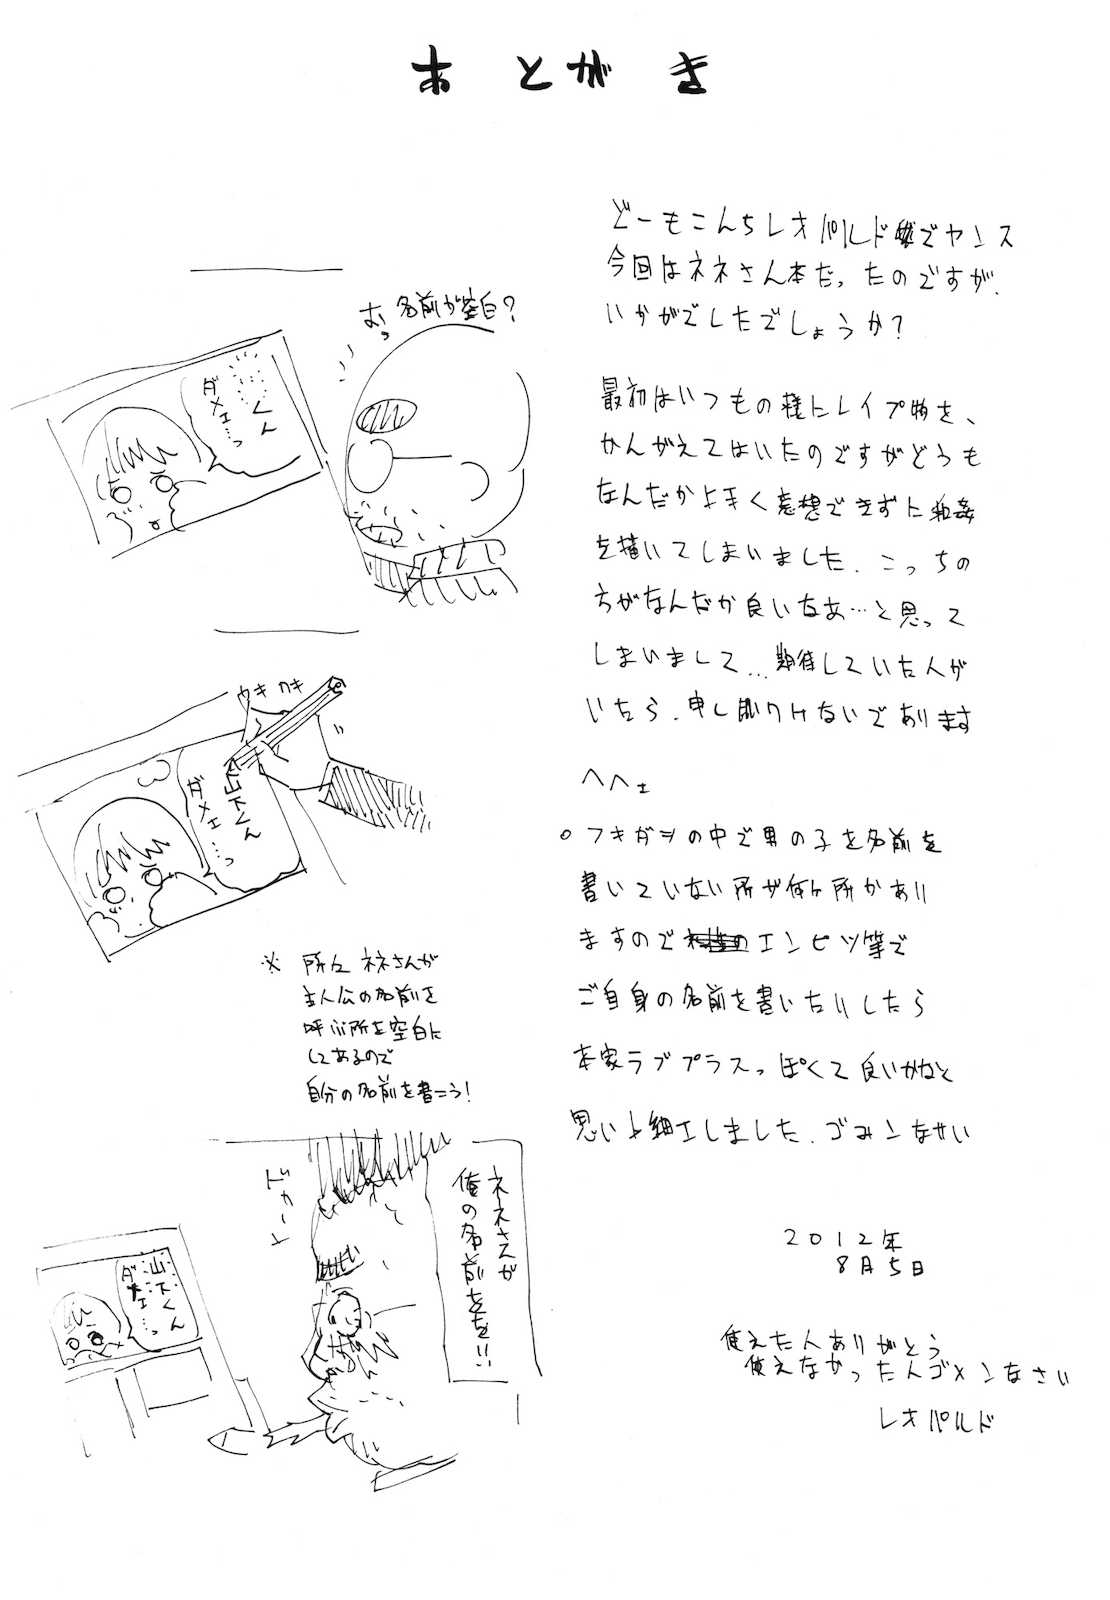 あとがき
どーもこんちレオパルドでヤンス
今回はネネさん本だったのですが、
いかがでしたでしょうか？
最初はいつもの様にレイプ物を、
かんがえてはいたのですがどうも
なんだか上手く妄想できずに和姦
を描いてしまいました。こっちの
方がなんだか良いなあ…と思って
しまいまして…期待していた人が
いたら、申し訳ないであります
へへェ
○フキダシの中で男の子を名前を
書いていない所が何ヶ所かあり
ますのでエンピツ等で
ご自身の名前を書いたりしたら
本家ラブプラスっぽくて良いかなと
思い小細工しました。ゴメンなさい
2012年
8月5日
使えた人ありがとう
使えなかった人ゴメンなさい
レオパルド
むっ 名前が空白？
……くん
ダメェ…っ
ウキ ウキ
山下くん
ダメェ…っ
※ 所々 ネネさんが
主人公の名前を
呼ぶ所を空白に
してあるので
自分の名前を書こう！
ネネさんが
俺の名前をを!!
山下くん
ダメェ…っ